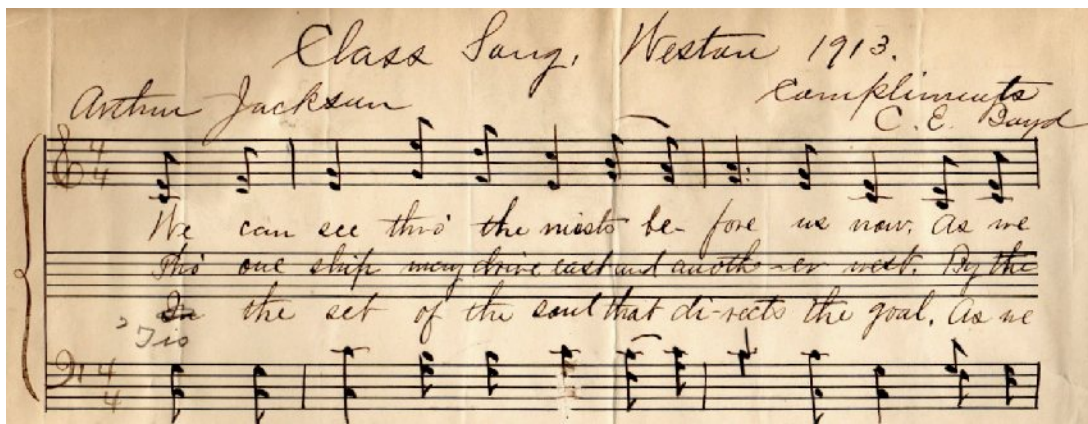 Class Song, Weston 1913.
Arthur Jackson
Compliments
C. E. Boyd
4 4
We can see thro' the mists be- fore us now. As we
Tho' one ship may drive east and anoth-er west. By the
In the set of the soul that di-rects the goal. As we
'Tis
4 4